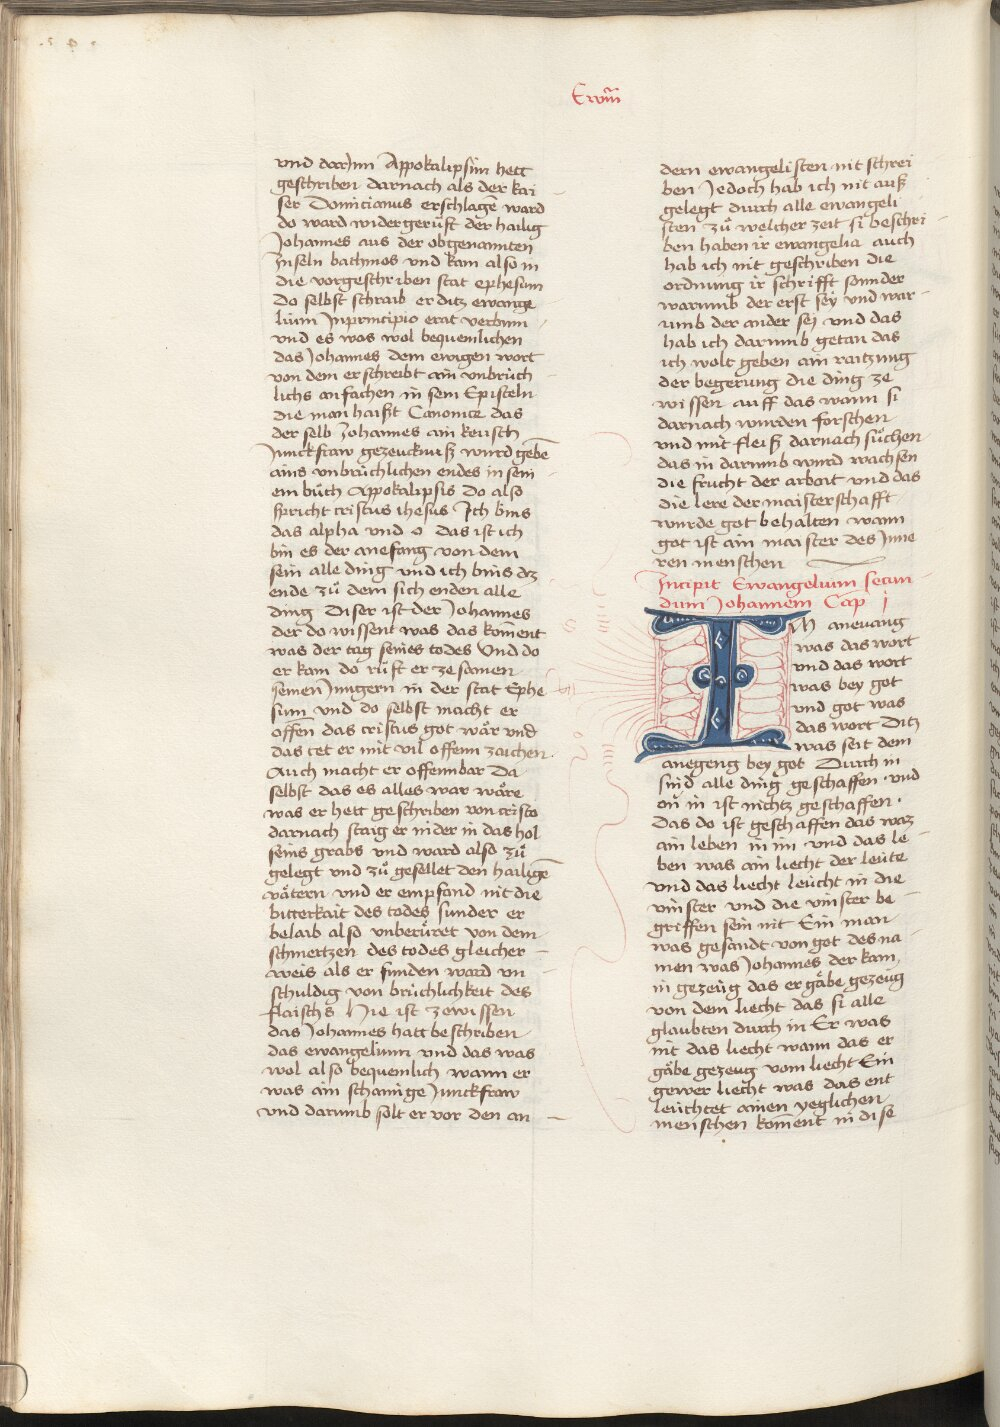 Ewm̄
vnd dor Inn Appokalipsim hett
geschriben darnach als der kai
ser Domicianus erschlagē ward
do ward widergerüft der hailig
Johannes aus der obgenannten
Inseln bathmos vnd kam also in
die vorgeschriben stat ephesum
Do selbst schraib er ditz ewange
lium Inprincipio erat verbum
vnd es was wol bequemlichen
das Johannes dem ewigen wort
von dem er schreibt ain vnbrüch
lichs anfachen in sein Episteln
die man haißt Canonice das
der selb Johannes ain keusch
Junckfraw gezeucknuß wurd gebē
ains vnbrüchlichen endes in sein
em bůch Appokalipsis do also
spricht cristus ihesus Ich bins
das alpha vnd o das ist ich
bin es der anefang von dem
sein alle ding vnd ich bins dz
ende zů dem sich enden alle
ding Diser ist der Johannes
der do wissent was das kom̄ent
was der tag seines todes Vnd do
er kam do rüft er zesamen
seinen Jungern in der stat Ephe
sum vnd do selbst macht er
offen das cristus got wär vnd
das tet er mit vil offenn zaichen
Auch macht er offennbar Da
selbst das es alles war wäre
was er hett geschriben von cristo
darnach staig er nider in das hol
seins grabs vnd ward also zů
gelegt vnd zů gesellet den hailigē
vätern vnd er empfand nit die
bitterkait des todes sunder er
belaib also vnberüret von dem
schmertzen des todes gleicher
weis als er funden ward vn
schuldig von brüchlichkeit des
flaischs Hie ist zewissen
das Johannes hatt beschriben
das ewangelium vnd das was
wol also bequemlich wann er
was ain schamige Junckfraw
vnd darumb solt er vor den an
dern ewangelisten nit schrei
ben Jedoch hab ich nit auß
gelegt durch alle ewangeli
sten zů welcher zeit si beschri
ben haben ir ewangelia auch
hab ich nit geschriben die
ordnung ir schrifft sonnder
warumb der erst sey vnd war
umb der ander sej vnd das
hab ich darumb getan das
ich wolt geben ain raitzung
der begerung die ding ze
wissen auff das wann si
darnach wurden forschen
vnd mit fleiß darnach sůchen
das in darumb wurd wachsen
die frucht der arbeit vnd das
die lere der maisterschafft
wurde got behalten wann
got ist ain maister des Inne
ren menschen
Incipit Ewangelium secun
dum Johannem Cap̄ j
IM anevang
was das wort
vnd das wort
was bey got
vnd got was
das wort Ditz
was seit dem
anegeng bey got Durch in
sind alle ding geschaffen · vnd
on in ist nichtz geschaffen ·
Das do ist geschaffen das waz
ain leben in im vnd das le
ben was ain liecht der leüte
vnd das liecht leücht in die
vinster vnd die vinster be
griffen sein nit Ein man
was gesandt von got des na
men was Johannes der kam
in gezeüg das er gäbe gezeüg
von dem liecht das si alle
glaubten durch in Er was
nit das liecht wann das er
gäbe gezeug vom liecht Ein
gewer liecht was das ent
leüchtet ainen yeglichen
menschen kom̄ent in dise